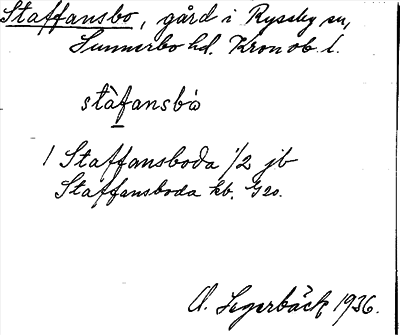 Staffansbo, gård i Ryssby sn,
Sunnerbo hd. Kronob. l.
stàfansbo
1 Staffansboda 1/2 jb
Staffansboda kb. G20.
A. Segerbäck 1936.